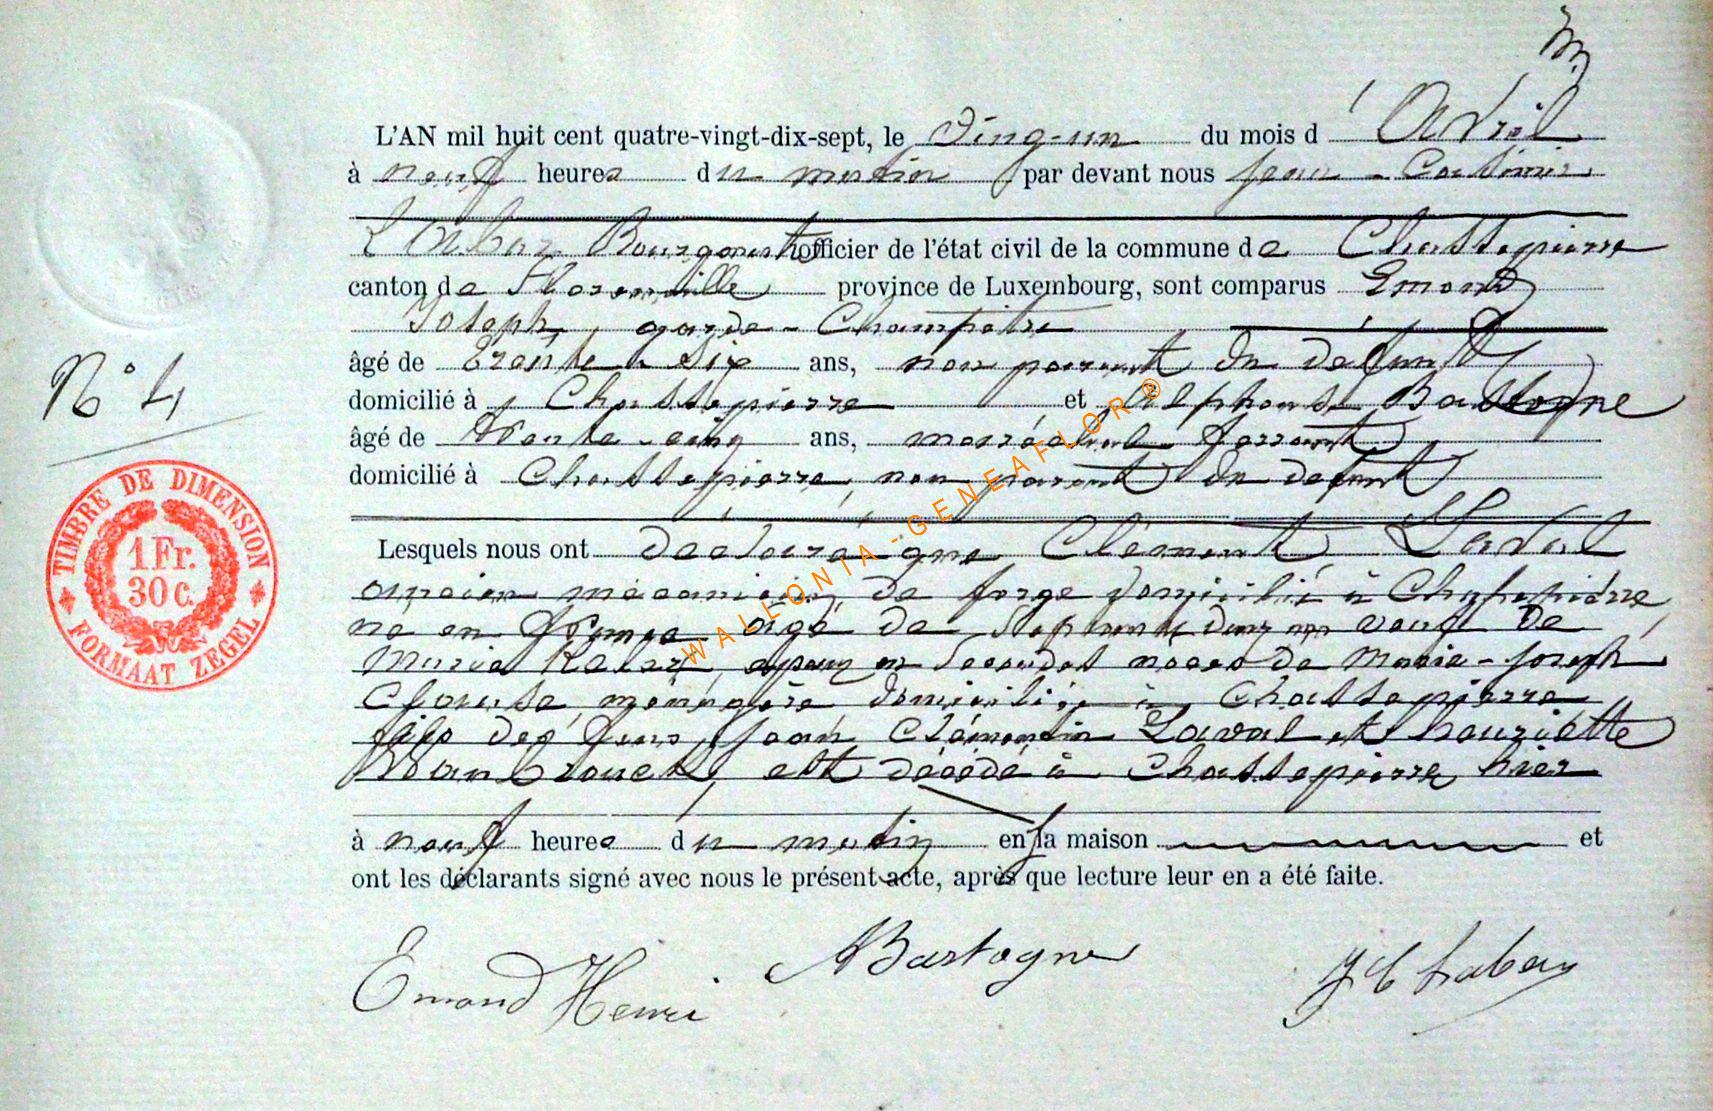 L'AN mil huit cent quatre-vingt-dix-sept, le Vingt-un du mois d'Avril
à neuf heures du matin par devant nous Jean-Casimir
Bourgmestre officier de l'état civil de la commune de Chassepierre
canton de Florenville province de Luxembourg, sont comparus Emond
Joseph, garde-Champêtre
âgé de trente-six ans, non parent du défunt
domicilié à Chassepierre et Alphonse Bastogne
âgé de trente-cinq ans, maréchal-ferrant
domicilié à Chassepierre, non parent du defunt
Lesquels nous ont déclaré que Clément Laval
ancien mécanicien de forge domicilié à Chassepierre
né en âgé de veuf de
Marie époux en secondes noces de Marie-Joseph
ménagère domiciliée à Chassepierre
fils des feus Jean Clémentin Laval et henriette
est décédé à Chassepierre hier
à neuf heures du matin en sa maison et
ont les déclarants signé avec nous le présent acte, après que lecture leur en a été faite.
Emond Henri
ABastogne
N° 4
TIMBRE DE DIMENSION
1 Fr.
30 c.
FORMAAT ZEGEL
WALLONIA-GENEAFLOR®